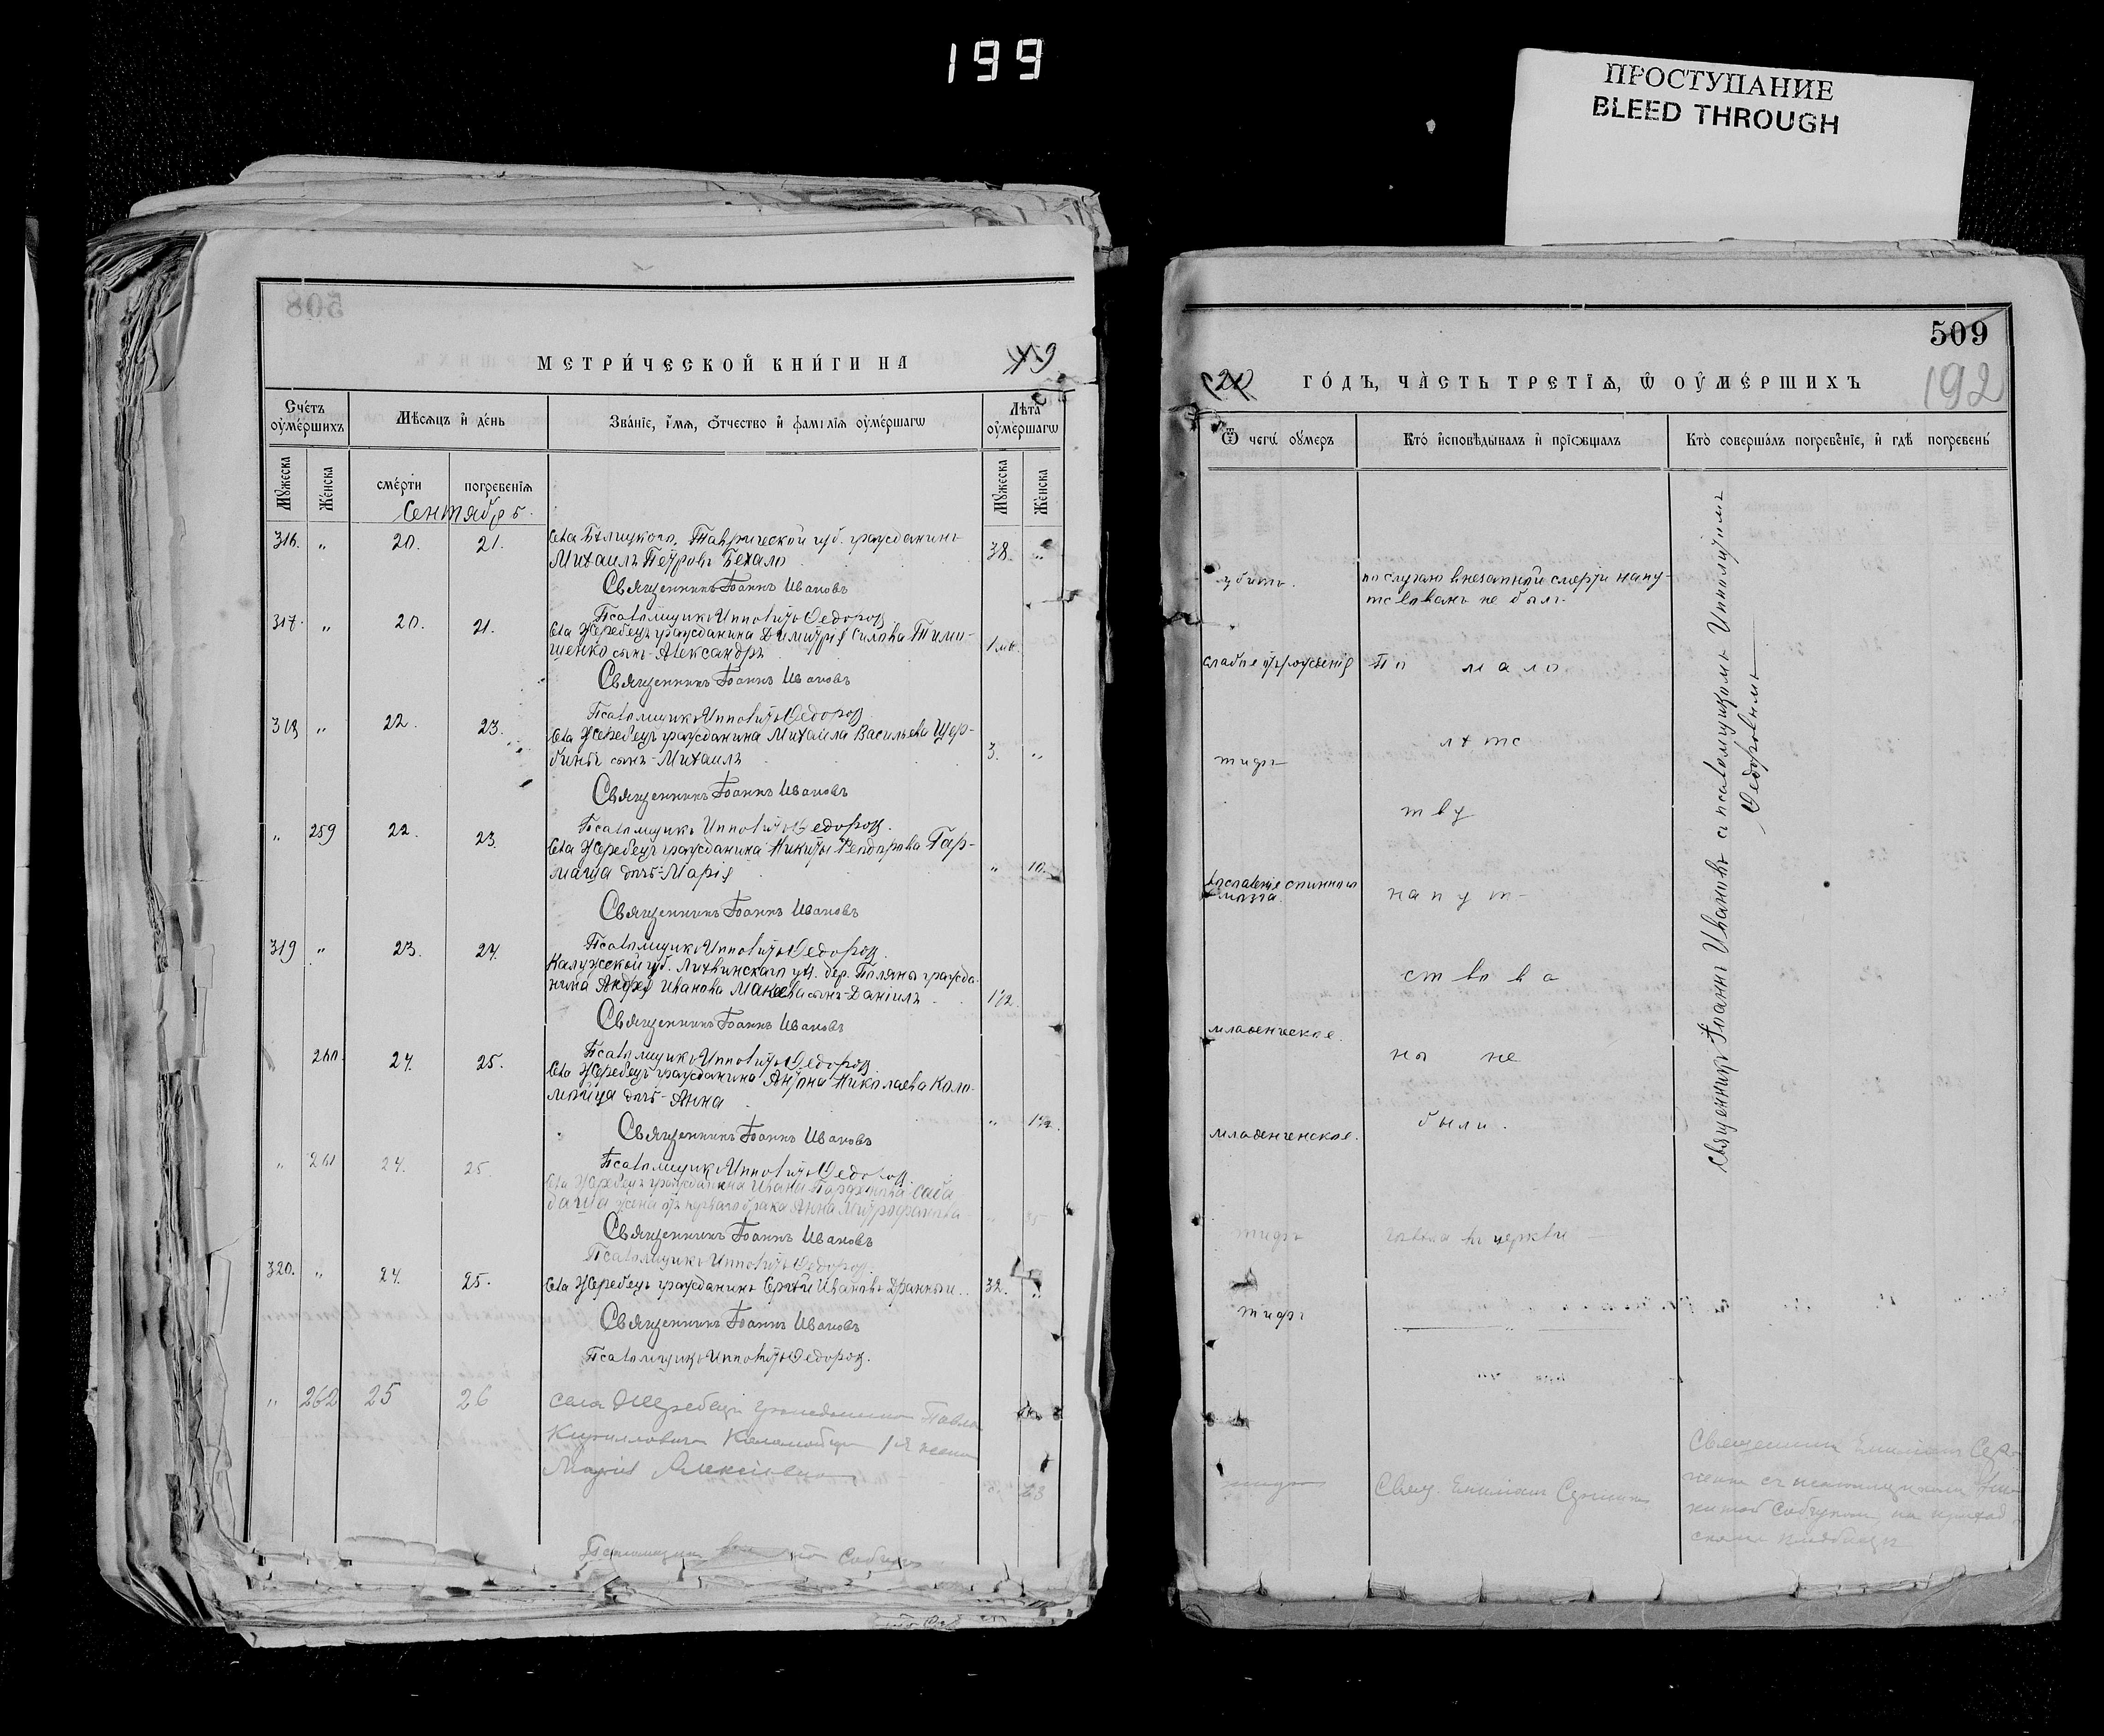 199
ПРОСТУПАНИЕ
BLEED THROUGH
508
МЕТРИ́ЧЕСКОЙ КНИ́ГИ НА
Сче́тъ оу҆ме́ршихъ
Мѣ́сяцъ и҆ де́нь
Зва́нїе, и҆́мѧ, ѻ҆́тчество и҆ фамі́лїѧ оу҆ме́ршагѡ
Лѣ́та оу҆ме́ршагѡ
Мꙋ́жеска
Же́нска
сме́рти
погребе́нїѧ
Мꙋ́жеска
Же́нска
Сентябрь.
316. „ 20. 21. Села Бѣлицкого, Таврической губ. гражданинъ 38. „
Михаилъ Петровъ Бехало
Священникъ Іоаннъ Ивановъ
Псаломщикъ Ипполитъ Федоров.
317. „ 20. 21. Села Жеребецъ гражданина Димитрія Силова Тимо-
щенко сынъ-Александръ 1 мѣс.
Священникъ Іоаннъ Ивановъ
Псаломщикъ Ипполитъ Федоров.
318 „ 22. 23. Села Жеребецъ гражданина Михаила Васильева Щер-
бины сынъ-Михаилъ 3. „
Священникъ Іоаннъ Ивановъ
Псаломщикъ Ипполитъ Федоров.
„ 259 22. 23. Села Жеребецъ гражданина Никиты Феодорова Гар-
маша дочь-Марія „ 10.
Священникъ Іоаннъ Ивановъ
Псаломщикъ Ипполитъ Федоров.
319 „ 23. 24. Калужской губ. Лихвинскаго уѣ. дер. Поляны гражда-
нина Андрея Иванова Макеева сынъ-Даніилъ 1½.
Священникъ Іоаннъ Ивановъ
Псаломщикъ Ипполитъ Федоров.
260 24. 25. Села Жеребецъ гражданина Антона Николаева Коло-
мойца дочь-Анна „ 1½.
Священникъ Іоаннъ Ивановъ
Псаломщикъ Ипполитъ Федоров.
„ 261 24. 25. Села Жеребецъ гражданина Ивана Саба
даша жена отъ перваго брака Анна Митрофанова „ 35
Священникъ Іоаннъ Ивановъ
Псаломщикъ Ипполитъ Федоров.
320. „ 24. 25. Села Жеребецъ гражданинъ Сергѣй Ивановъ Дранный. 32. „
Священникъ Іоаннъ Ивановъ
Псаломщикъ Ипполитъ Федоров.
„ 262 25 26 села Жеребецъ гражданина Павла
Кирилловича Коломойца 1-я жена
Марія Алексіевна 63
Псаломщикъ
509
192
ГО́ДЪ, ЧА́СТЬ ТРЕ́ТЇѦ, Ѡ҆ ОУ҆МЕ́РШИХЪ
Ѿ чегѡ̀ оу҆́меръ
Кто̀ и҆сповѣ́дывалъ и҆ прїѡбща́лъ
Кто̀ соверша́лъ погребе́нїе, и҆ гдѣ̀ погребены̀
убитъ.
по случаю внезапной смерти напу-
тствованъ не былъ.
слабые отъ рожденія
По мало
лѣтс
тифъ
тву
воспаленіе спинного
мозга.
напут-
ствова
младенческое.
ны не
были.
младенческое.
тифъ
глухая въ церкви
тифъ
Священникъ Іоаннъ Ивановъ съ псаломщикомъ Ипполитомъ
Федоровымъ
тифъ
Свящ.
Священникъ